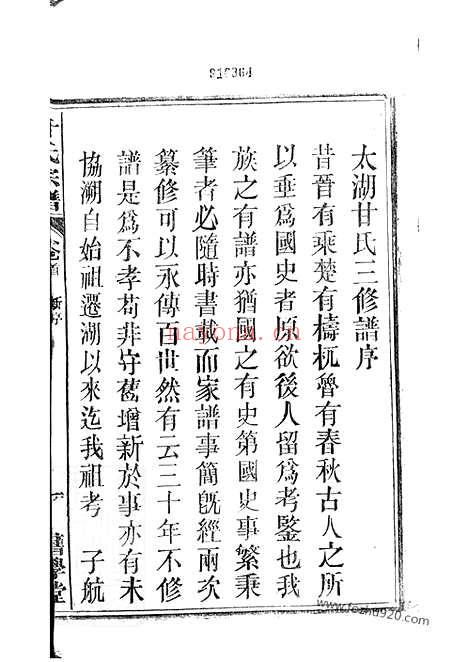 816364
太湖甘氏三修譜序
昔晉有乘楚有檮杌魯有春秋古人之所
以垂為國史者原欲後人留為考鑒也我
族之有譜亦猶國之有史第國史事繁秉
筆者必隨時書載而家譜事簡旣經兩次
纂修可以永傳百世然有云三十年不修
譜是爲不孝苟非守舊增新於事亦有未
協溯自始祖遷湖以來迄我祖考 子航
氏宗譜
卷首
新序
www.fozhu920.com